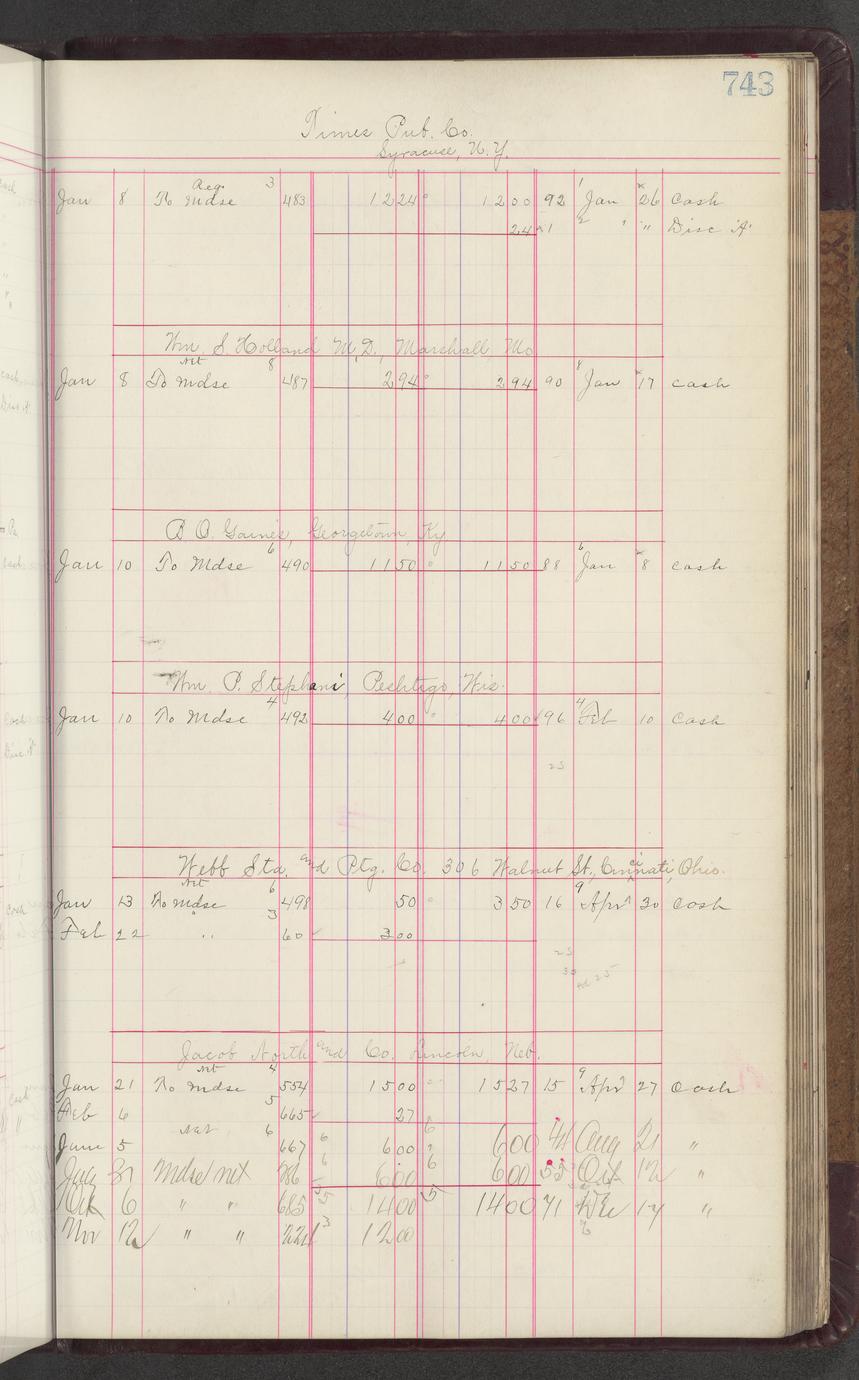 743
Times Pub. Co.
Syracuse, N.Y.
Jan 8 To Mdse Reg. 3 483 12 24 12 00 92 1 Jan 26 Cash
24 1 2 " " Disc "A"
Wm. S. Holland M.D., Marshall, Mo
Jan 8 To Mdse Net 8 487 2 94 2 94 90 8 Jan 17 cash
B. O. Gaines, Georgetown, Ky
Jan 10 To Mdse 6 490 11 50 11 50 88 6 Jan 8 cash
Wm. P. Stephani, Peshtigo, Wis.
Jan 10 To Mdse 4 492 4 00 4 00 96 4 Feb 10 Cash
23
Webb Sta. and Ptg. Co. 306 Walnut St., Cincinnati, Ohio.
Jan 13 To Mdse Net 6 498 50 3 50 16 9 Apr 30 Cash
Feb 22 " 3 60 3 00
23
30
Jacob North and Co. Lincoln, Neb.
Jan 21 To Mdse Net 4 554 15 00 15 27 15 9 Apr 27 Cash
Feb 6 5 665 27
June 5 Net 6 667 6 6 00 6 6 00 44 Aug 21 "
Aug 31 Mdse net 286 6 6 00 6 6 00 55 Oct 12 "
Oct 6 " " 685 5 14 00 5 14 00 71 Dec 14 "
Nov 12 " " 221 3 12 00